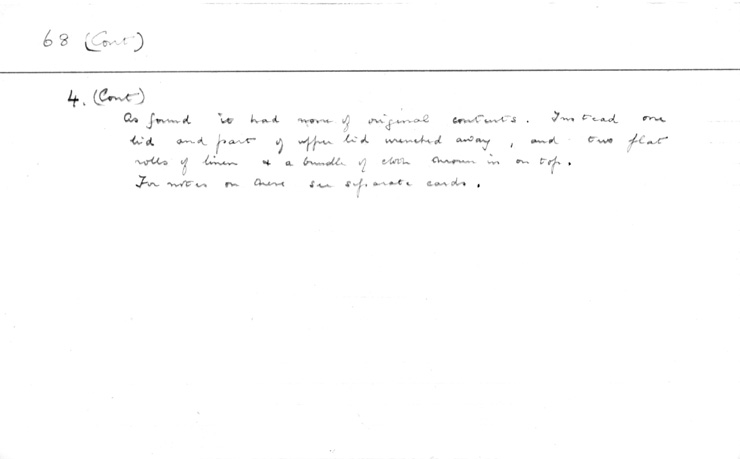 68 (Cont)
4. (Cont)
As found it had none of original contents. Instead one
lid and part of upper lid wrenched away, and two flat
rolls of linen & a bundle of cloth thrown in on top.
For notes on these see separate cards.